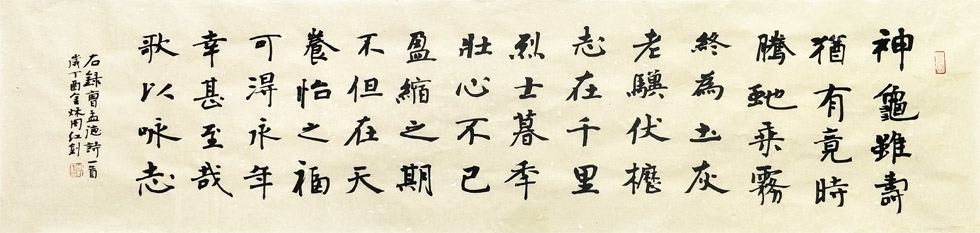 神龜雖壽
猶有竟時
騰虵乘霧
終為土灰
老驥伏櫪
志在千里
烈士暮秊
壯心不已
盈縮之期
不但在天
養怡之福
可得永年
幸甚至哉
歌以咏志
右録曹孟德詩一首
歲丁酉金秋周红